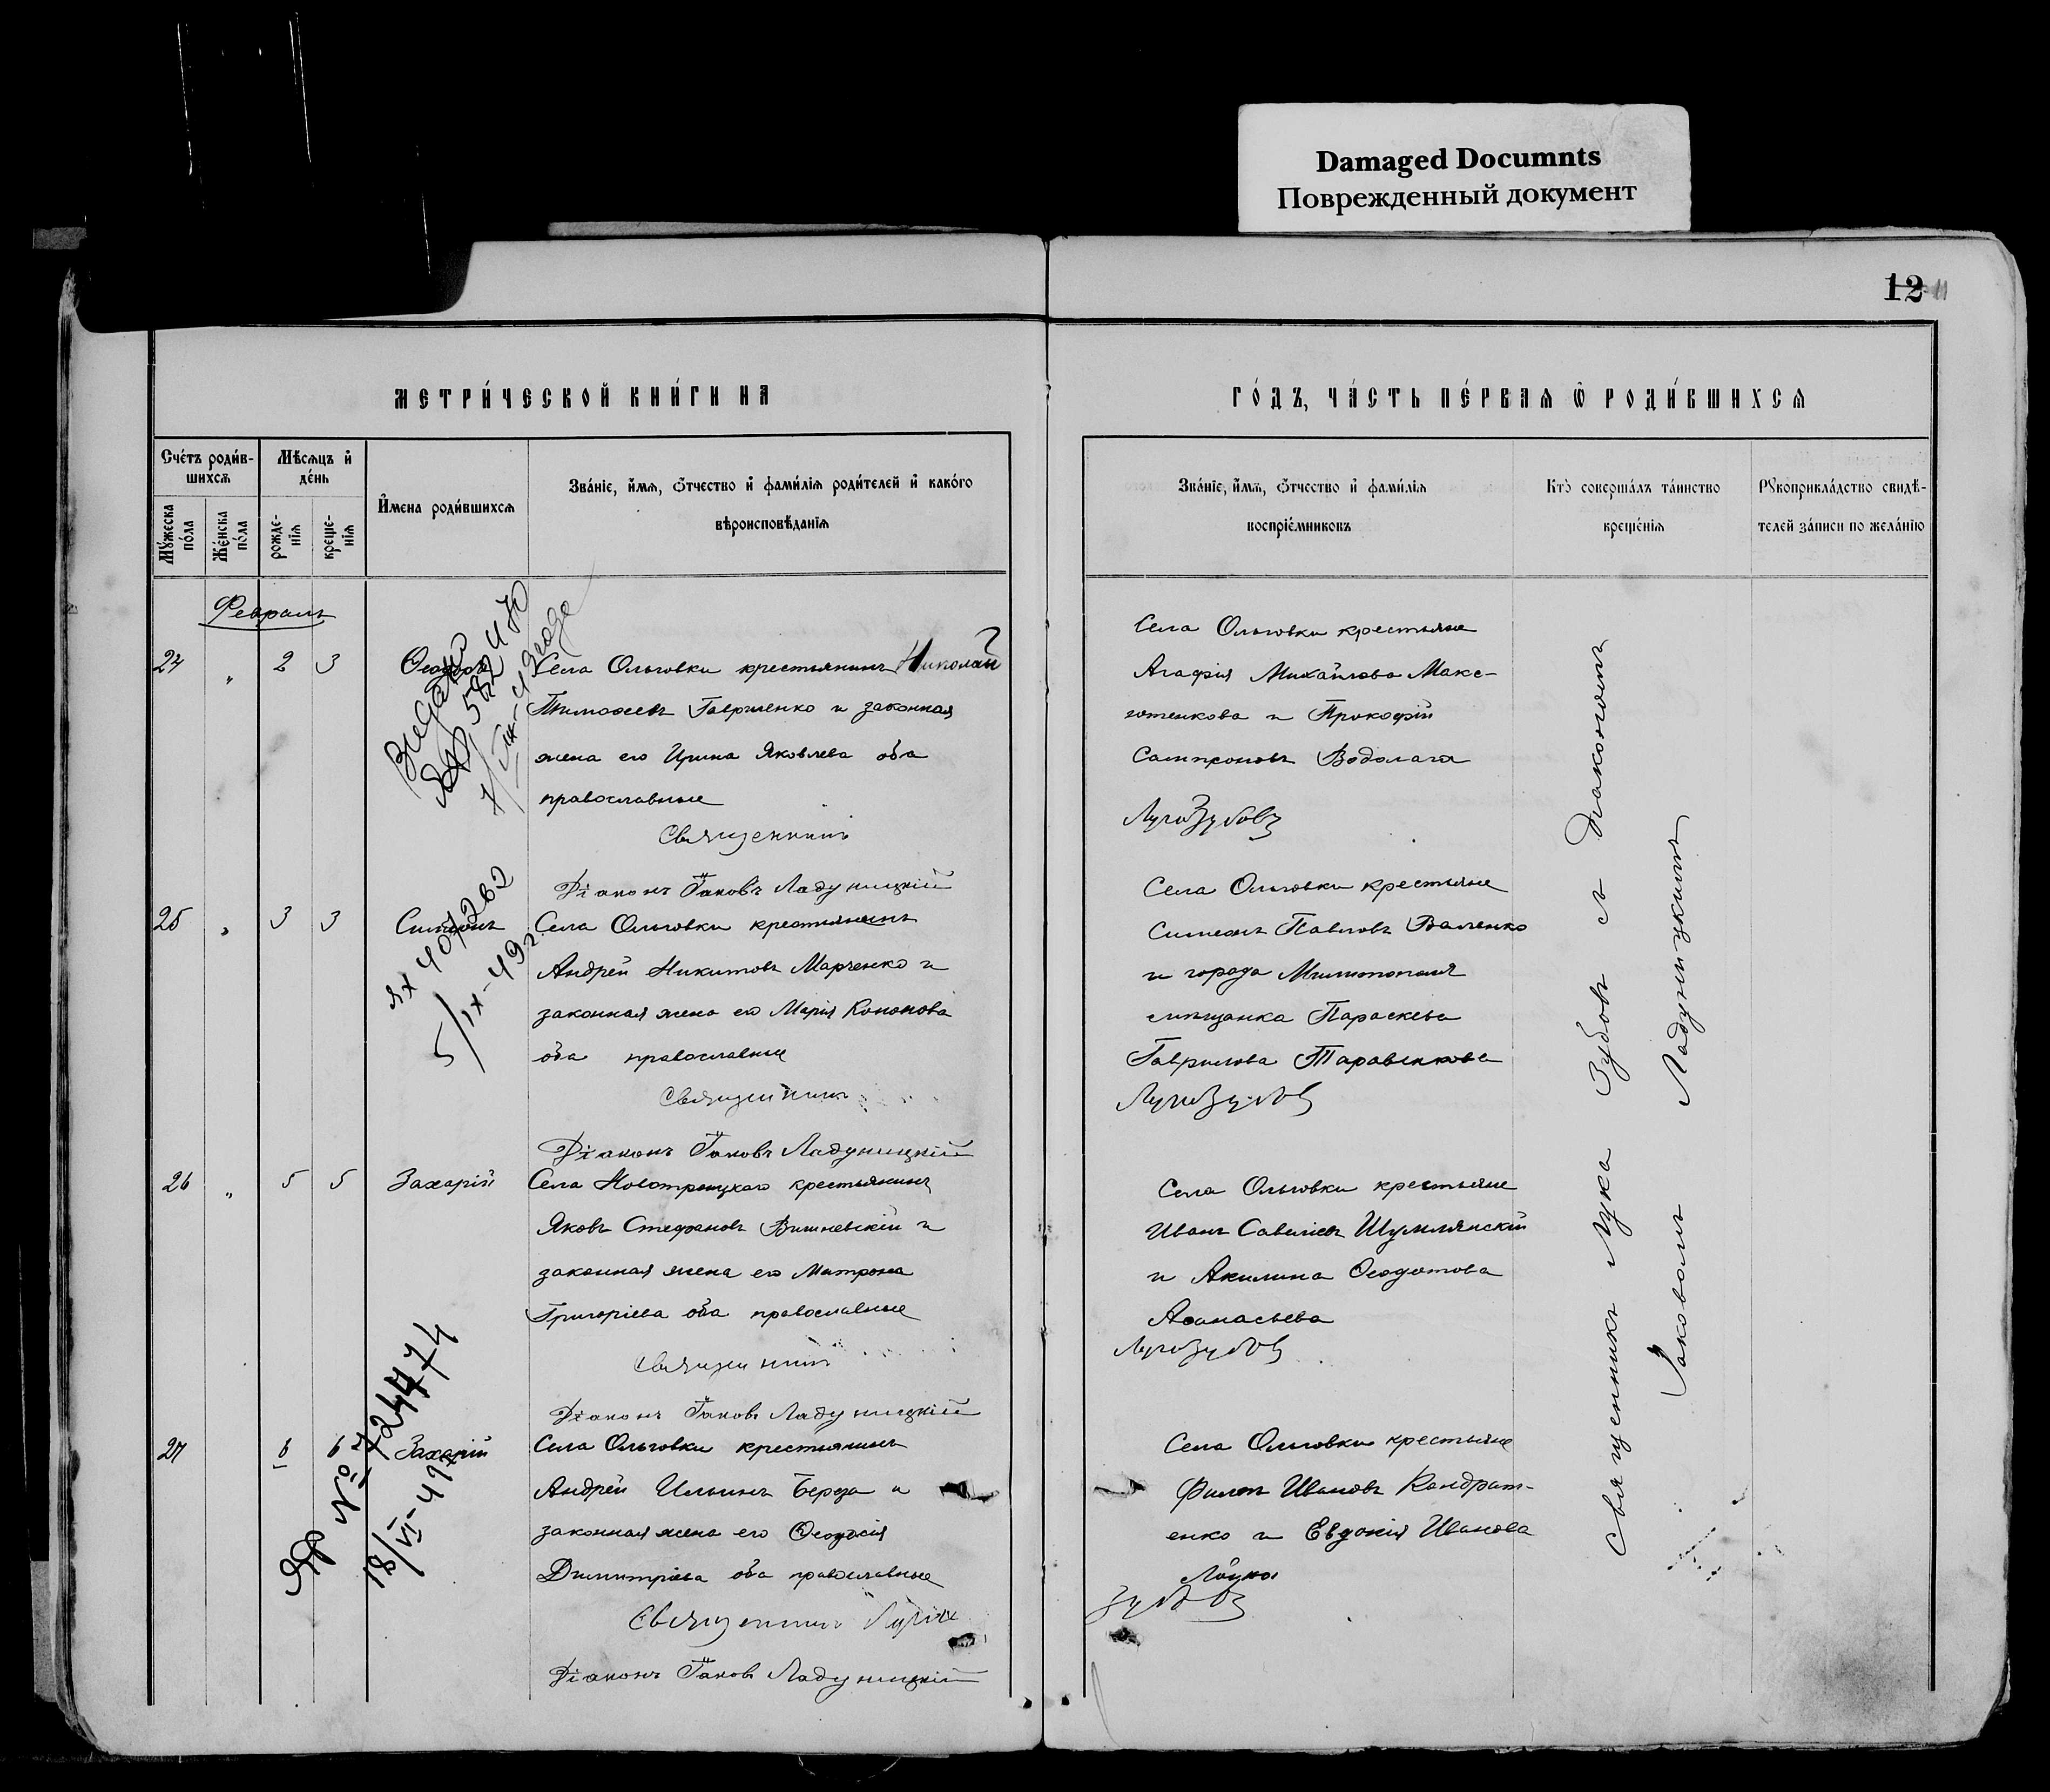 Damaged Documnts
Поврежденный документ
12 11
МЕТРИ́ЧЕСКОЙ КНИ́ГИ НА
ГО́ДЪ, ЧА́СТЬ ПЕ́РВАѦ Ѽ РОДИ́ВШИХСѦ
Счéтъ роди́в-
шихсѧ
Мѣсѧцъ и҆
дéнь
Мꙋ́жеска
по́ла
Же́нска
по́ла
рожде-
нїѧ
креще-
нїѧ
И҆мена роди́вшихсѧ
Зва́нїе, и҆́мѧ, ѻ҆́тчество и҆ фами́лїѧ роди́телей и҆ како́го
вѣроисповѣ́данїѧ
Зва́нїе, и҆́мѧ, ѻ҆́тчество и҆ фами́лїѧ
воспрїе́мниковъ
Кто̀ соверша́лъ та́инство
креще́нїѧ
Рꙋкоприкла́дство свидѣ́-
телей за́писи по жела́нїю
Февраль
24 „ 2 3 Ѳеодоръ
Села Ольговки крестьянинъ Николай
Тимоѳеевъ Гавриленко и законная
жена его Ирина Яковлева оба
православные
Священникъ
Діаконъ Іаковъ Ладуницкій
Села Ольговки крестьяне
Агафія Михайлова Макс-
ютенкова и Прокофій
Сампсоновъ Водолага
Лука Зубовъ
25 „ 3 3 Симеонъ
Села Ольговки крестьянинъ
Андрей Никитовъ Марченко и
законная жена его Марія Кононова
оба православные
Священникъ
Діаконъ Іаковъ Ладуницкій
5/IX-49г.
Села Ольговки крестьяне
Симеонъ ПавловъВаленко
и города Мелитополя
мѣщанка Параскева
Гаврилова Таравенкова
Лука Зубовъ
26 „ 5 5 Захарій
Села Новотроицкаго крестьянинъ
Яковъ Стефановъ Вишневскій и
законная жена его Матрона
Григоріева оба православные
Священникъ
Діаконъ Іаковъ Ладуницкій
Села Ольговки крестьяне
Иванъ Савеліевъ Шумлянскій
и Акилина Ѳеодотова
Аѳанасьева
Лука Зубовъ
27 6 6 Захарій
Села Ольговки крестьянинъ
Андрей Ильинъ Береза и
законная жена его Ѳеодосія
Димитріева оба православные
Священникъ Лука
Діаконъ Іаковъ Ладуницкій
№ 724474
18/VI-49г
Села Ольговки крестьяне
Филипъ Ивановъ Кондрат-
енко и Евдокія Иванова
Зубовъ
Священникъ Лука Зубовъ съ Діакономъ
Іаковомъ Ладуницкимъ